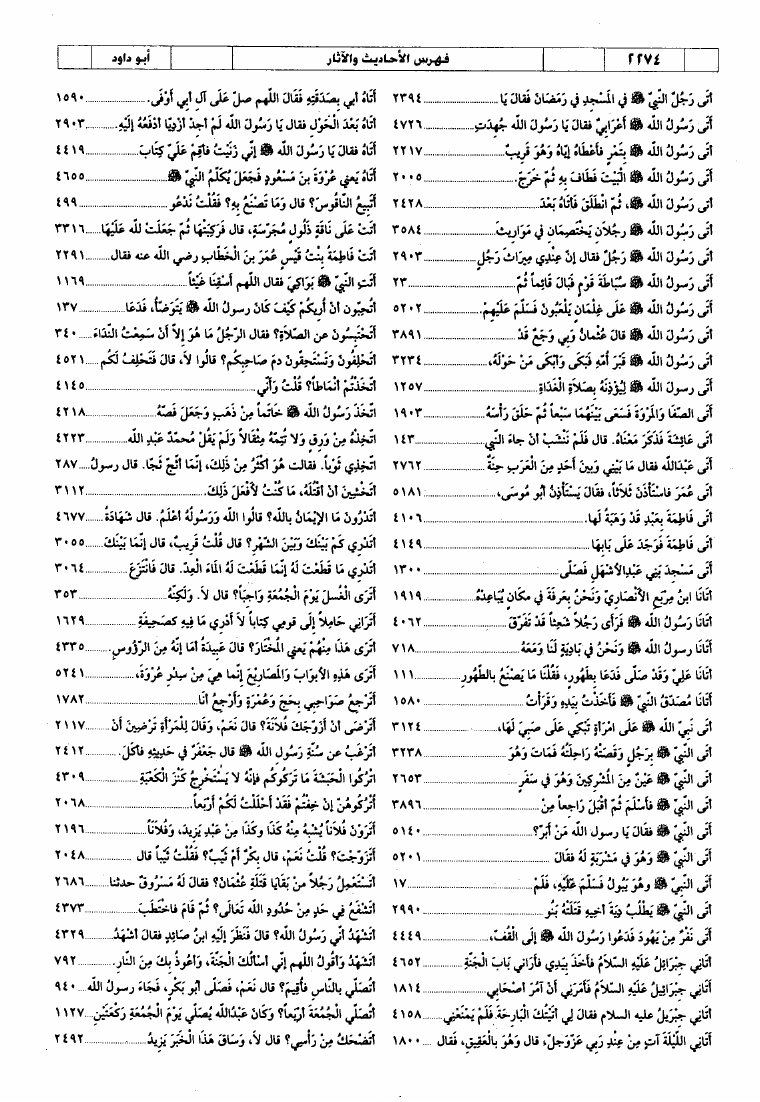 ٢٢٧٤
فهرس الأحاديث والآثار
أبو داود
أتَى رَجُلٌ النبيَّ ﷺ في المَسْجِدِ في رَمَضَانَ فقالَ يَا ... ٢٣٩٤
أتَى رَسُولَ الله ﷺ أعْرَابيٌّ فقالَ يَا رَسُولَ الله جُهِدَتِ ... ٤٧٢٦
أتَى رَسُولُ الله ﷺ بِتَمْرٍ فأعْطَاهُ إيَّاهُ وَهُوَ قَرِيبٌ ... ٢٢١٧
أتَى رَسُولُ الله ﷺ الْبَيْتَ فَطَافَ بِهِ ثُمَّ خَرَجَ. ... ٢٠٠٥
أتَى رسولَ الله ﷺ، ثُمَّ انْطَلَقَ فأتَاهُ بَعْدَ ... ٢٤٢٨
أتَى رَسُولَ الله ﷺ رجُلاَنِ يَخْتَصِمَانِ في مَوَارِيثَ ... ٣٥٨٤
أتَى رَسُولَ الله ﷺ رَجُلٌ فقال إنَّ عِنْدِي مِيرَاثَ رَجُلٍ ... ٢٩٠٣
أتَى رَسُولُ الله ﷺ سُبَاطَةَ قَوْمٍ فَبَالَ قَائِماً ثُمَّ ... ٢٣
أتَى رَسُولُ الله ﷺ عَلَى غِلْمَانٍ يَلْعَبُونَ فَسَلَّمَ عَلَيْهِمْ. ... ٥٢٠٢
أتَى رَسُولَ الله ﷺ قالَ عُثمانُ وَبِي وَجَعٌ قَدْ ... ٣٨٩١
أتَى رَسُولُ الله ﷺ قَبْرَ أُمِّهِ فَبَكَى وَأَبْكَى مَنْ حَوْلَهُ، ... ٣٢٣٤
أتَى رسولَ الله ﷺ لِيُؤْذِنَهُ بِصَلاَةِ الْغَدَاةِ ... ١٢٥٧
أتَى الصَّفَا وَالمَرْوَةَ فَسَعَى بَيْنَهُمَا سَبْعاً ثُمَّ حَلَقَ رَأْسَهُ ... ١٩٠٣
أتَى عَائِشَةَ فَذَكَرَ مَعْنَاهُ. قال فَلَمْ نَنْشَبْ أنْ جاءَ النبي ... ١٤٣
أتَى عَبْدَالله فقال مَا بَيْنِي وَبينَ أحَدٍ مِنَ الْعَرَبِ حِنَةٌ ... ٢٧٦٢
أتَى عُمَرَ فَاسْتَأْذَنَ ثَلاَثاً، فقالَ يَسْتَأْذِنُ أبُو مُوسَى، ... ٥١٨١
أتَى فَاطِمَةَ بِعَبْدٍ قَدْ وَهَبَهُ لَهَا. ... ٤١٠٦
أتَى فَاطِمَةَ فَوَجَدَ عَلَى بَابِهَا ... ٤١٤٩
أتَى مَسْجِدَ بَنِي عَبْدِالأشْهَلِ فَصَلَّى ... ١٣٠٠
أتَانَا ابنُ مِرْبَعٍ الأنْصَارِيُّ وَنَحْنُ بِعَرَفَةَ في مكانٍ يُبَاعِدُهُ ... ١٩١٩
أتَانَا رَسُولُ الله ﷺ فَرَأى رَجُلاً شَعِثاً قَدْ تَفَرَّقَ ... ٤٠٦٢
أتَانَا رسولُ الله ﷺ وَنَحْنُ في بَادِيَةٍ لَنَا وَمَعَهُ ... ٧١٨
أتَانَا عَلِيٌّ وَقَدْ صَلَّى فَدَعَا بِطَهُورٍ، فَقُلْنَا مَا يَصْنَعُ بالطَّهُورِ ... ١١١
أتَانَا مُصَدِّقُ النَّبيِّ ﷺ فَأخَذْتُ بِيَدِهِ وَقَرَأْتُ ... ١٥٨٠
أتَى نَبِيُّ الله ﷺ عَلَى امْرَأةٍ تَبْكِي عَلَى صَبِيٍّ لَهَا، ... ٣١٢٤
أتَى النَّبيُّ ﷺ بِرَجُلٍ وَقَصَتْهُ رَاحِلَتُهُ فَمَاتَ وَهُوَ ... ٣٢٣٨
أتَى النَّبيَّ ﷺ عَيْنٌ مِنَ المُشْرِكِينَ وَهُوَ في سَفَرٍ ... ٢٦٥٣
أتَى النَّبيَّ ﷺ فأسْلَمَ ثُمَّ أقْبَلَ رَاجِعاً مِنْ ... ٣٨٩٦
أتَى النَّبيَّ ﷺ فقالَ يَا رسولَ الله مَنْ أبَرُّ؟ ... ٥١٤٠
أتَى النَّبيَّ ﷺ وَهُوَ في مَشْرُبَةٍ لَهُ فقالَ ... ٥٢٠١
أتَى النَّبيَّ ﷺ وهُوَ يَبُولُ فَسَلَّمَ عَلَيْهِ، فَلَمْ ... ١٧
أتَى النَّبيَّ ﷺ يَطْلُبُ دِيَةَ أخِيهِ قَتَلَتْهُ بَنُو ... ٢٩٩٠
أتَى نَفَرٌ مِنْ يَهُودَ فَدَعُوا رَسُولَ الله ﷺ إلَى الْقُفِّ، ... ٤٤٤٩
أتَانِي جِبْرَائِيلُ عَلَيْهِ السَّلاَمُ فأخَذَ بِيَدِي فأرَانِي بَابَ الْجَنَّةِ ... ٤٦٥٢
أتَانِي جِبْرَائِيلُ عَلَيْهِ السَّلاَمُ فأمَرَنِي أنْ آمُرَ أصْحَابِي ... ١٨١٤
أتَانِي جِبْرِيلُ عليه السلام فقالَ لِي أتَيْتُكَ الْبَارِحَةَ فَلَمْ يَمْنَعْنِي ... ٤١٥٨
أتَانِي اللَّيْلَةَ آتٍ مِنْ عِنْدِ رَبِّي عَزَّوَجلَّ، قال وَهُوَ بالْعَقِيقِ، فقال ... ١٨٠٠
أتَاهُ أبِي بِصَدَقَتِهِ فَقَالَ اللَّهم صلِّ عَلَى آلِ أبِي أوْفَى. ... ١٥٩٠
أتَاهُ بَعْدَ الْحَوْلِ فقال يَا رَسُولَ الله لَمْ أجِدْ أزْدِيًّا أدْفَعُهُ إلَيْهِ. ... ٢٩٠٣
أتَاهُ فقالَ يَا رَسُولَ الله ﷺ إنِّي زَنَيْتُ فأقِمْ عَلَيَّ كِتَابَ ... ٤٤١٩
أتَاهُ يَعني عُرْوَةَ بنَ مَسْعُودٍ فَجَعَلَ يُكَلِّمُ النَّبيَّ ﷺ ... ٤٦٥٥
أتَبِيعُ النَّاقُوسَ؟ قال وَمَا تَصْنَعُ بِهِ؟ فَقُلْتُ نَدْعُو ... ٤٩٩
أتَتْ عَلَى نَاقَةٍ ذَلُولٍ مُجَرَّسَةٍ، قال فَرَكِبَتْهَا ثُمَّ جَعَلَتْ لله عَلَيْهَا ... ٣٣١٦
أتَتْ فَاطِمَةُ بِنْتُ قَيْسٍ عُمَرَ بنَ الْخَطَّابِ رضي الله عنه فقال ... ٢٢٩١
أتَتِ النبيَّ ﷺ بَوَاكِيَ فقالَ اللهم أَسْقِنَا غَيْثاً ... ١١٦٩
أتُحِبُّونَ أنْ أُرِيَكُمْ كَيْفَ كَانَ رسولُ الله ﷺ يَتَوَضَّأُ، فَدَعَا ... ١٣٧
أتَحْتَبِسُونَ عن الصَّلاَةِ؟ فقال الرَّجُلُ مَا هُوَ إلاَّ أنْ سَمِعْتُ النِّدَاءَ ... ٣٤٠
أتَحْلِفُونَ وَتَسْتَحِقُّونَ دمَ صَاحِبِكُم؟ قالُوا لاَ، قالَ فَتَحْلِفُ لَكُم ... ٤٥٢١
أتَّخَذْتُمْ أنْمَاطاً؟ قُلْتُ وَأنَّى ... ٤١٤٥
أتَّخَذَ رَسُولُ الله ﷺ خَاتَماً مِنْ ذَهَبٍ وَجَعَلَ فَصَّهُ ... ٤٢١٨
أتَّخِذْهُ مِنْ وَرِقٍ وَلا تُتِمَّهُ مِثْقَالاً وَلَمْ يَقُلْ مُحمَّدٌ عَبدِ الله ... ٤٢٢٣
أتَّخِذِي ثَوْباً. فقالت هُوَ أكْثَرُ مِنْ ذَلِكَ، إنَّمَا أثُجُّ ثَجًّا. قال رسولُ ... ٢٨٧
أتَخْشَيْنَ أنْ أقْتُلَهُ، مَا كُنْتُ لأَفْعَلَ ذَلِكَ. ... ٣١١٢
أتَدْرُونَ مَا الإِيْمَانُ بالله؟ قالُوا الله وَرَسُولُهُ أعْلَمُ. قال شَهَادَةُ ... ٤٦٧٧
أتَدْرِي كَمْ بَيْنَكَ وَبَيْنَ الشَّهْرِ؟ قال قُلْتُ قَرِيبٌ، قال إنَّمَا بَيْنَكَ ... ٣٠٥٥
أتَدْرِي مَا قَطَعْتَ لَهُ إنَّمَا قَطَعْتَ لَهُ المَاءَ الْعِدَّ. قالَ فَانْتَزَعَ ... ٣٠٦٤
أتَرَى الْغُسلَ يَوْمَ الْجُمُعَةِ وَاجِباً؟ قالَ لاَ. وَلَكِنَّهُ ... ٣٥٣
أتَرَانِي حَامِلاً إلَى قَوْمِي كِتَاباً لاَ أدْرِي مَا فِيهِ كَصَحِيفَةِ ... ١٦٢٩
أتَرَى هَذَا مِنْهُمْ يَعني المُخْتَارَ؟ قال عَبِيدَةُ أمَا إنَّهُ مِنَ الرُّؤُوسِ. ... ٤٣٣٥
أتَرَى هَذِهِ الأبْوَابَ وَالمَصَارِيعَ إنَّما هِيَ مِنْ سِدْرِ عُرْوَةَ، ... ٥٢٤١
أتَرْجِعُ صَوَاحِبِي بِحَجٍّ وَعُمْرَةٍ وَأرْجِعُ أنَا ... ١٧٨٢
أتَرْضَى أنْ أُزَوِّجَكَ فُلاَنَةَ؟ قالَ نَعَمْ، وَقَالَ لِلْمَرْأةِ تَرْضَيْنَ أنْ ... ٢١١٧
أتَرْغَبُ عن سُنَّةِ رَسولِ الله ﷺ قال جَعْفَرٌ في حَدِيثِهِ فأكَلَ. ... ٢٤١٢
اتْرُكُوا الْحَبَشَةَ مَا تَرَكُوكُم فإنَّهُ لا يَسْتَخْرِجُ كَنْزَ الْكَعْبَةِ ... ٤٣٠٩
أتْرُكُوهُنَّ إنْ خِفْتُمْ فَقَدْ أحْلَلْتُ لَكُمْ أرْبَعاً. ... ٢٠٦٨
أتَرَوْنَ فُلاَناً يُشْبِهُ مِنْهُ كَذَا وكَذَا مِنْ عَبْدِ يَزِيدَ، وَفُلاَناً ... ٢١٩٦
أتَزَوَّجْتَ؟ قُلْتُ نَعَمْ، قال بِكْرٌ أمْ ثَيِّبٌ؟ فَقُلْتُ ثَيِّباً قال ... ٢٠٤٨
أتَسْتَعْمِلُ رَجُلاً مِنْ بَقَايَا قَتَلَةِ عُثْمَانَ؟ فقالَ لَهُ مَسْرُوقٌ حدثنا ... ٢٦٨٦
أتَشْفَعُ في حَدٍّ مِنْ حُدُودِ الله تَعَالَى؟ ثُمَّ قامَ فاخْتَطَبَ ... ٤٣٧٣
أتَشْهَدُ أنِّي رَسُولُ الله؟ قالَ فَنَظَرَ إلَيْهِ ابنُ صَائِدٍ فقالَ أشْهَدُ ... ٤٣٢٩
أتَشَهَّدُ وَأقُولُ اللهم إنِّي أسْألُكَ الْجَنَّةَ، وَأعُوذُ بِكَ مِنَ النَّارِ. ... ٧٩٢
أتُصَلِّي بالنَّاسِ فأُقِيمَ؟ قال نَعَمْ، فَصَلَّى أبُو بَكْرٍ، فَجَاءَ رسولُ الله ... ٩٤٠
أتُصَلِّي الْجُمُعَةَ أرْبَعاً؟ وَكَانَ عَبْدُالله يُصَلِّي يَوْمَ الْجُمُعَةِ رَكْعَتَيْنِ ... ١١٢٧
أتَضْحَكُ مِنْ رَأْسِي؟ قال لاَ، وَسَاقَ هَذَا الْخَبَرَ يَزِيدُ ... ٢٤٩٢